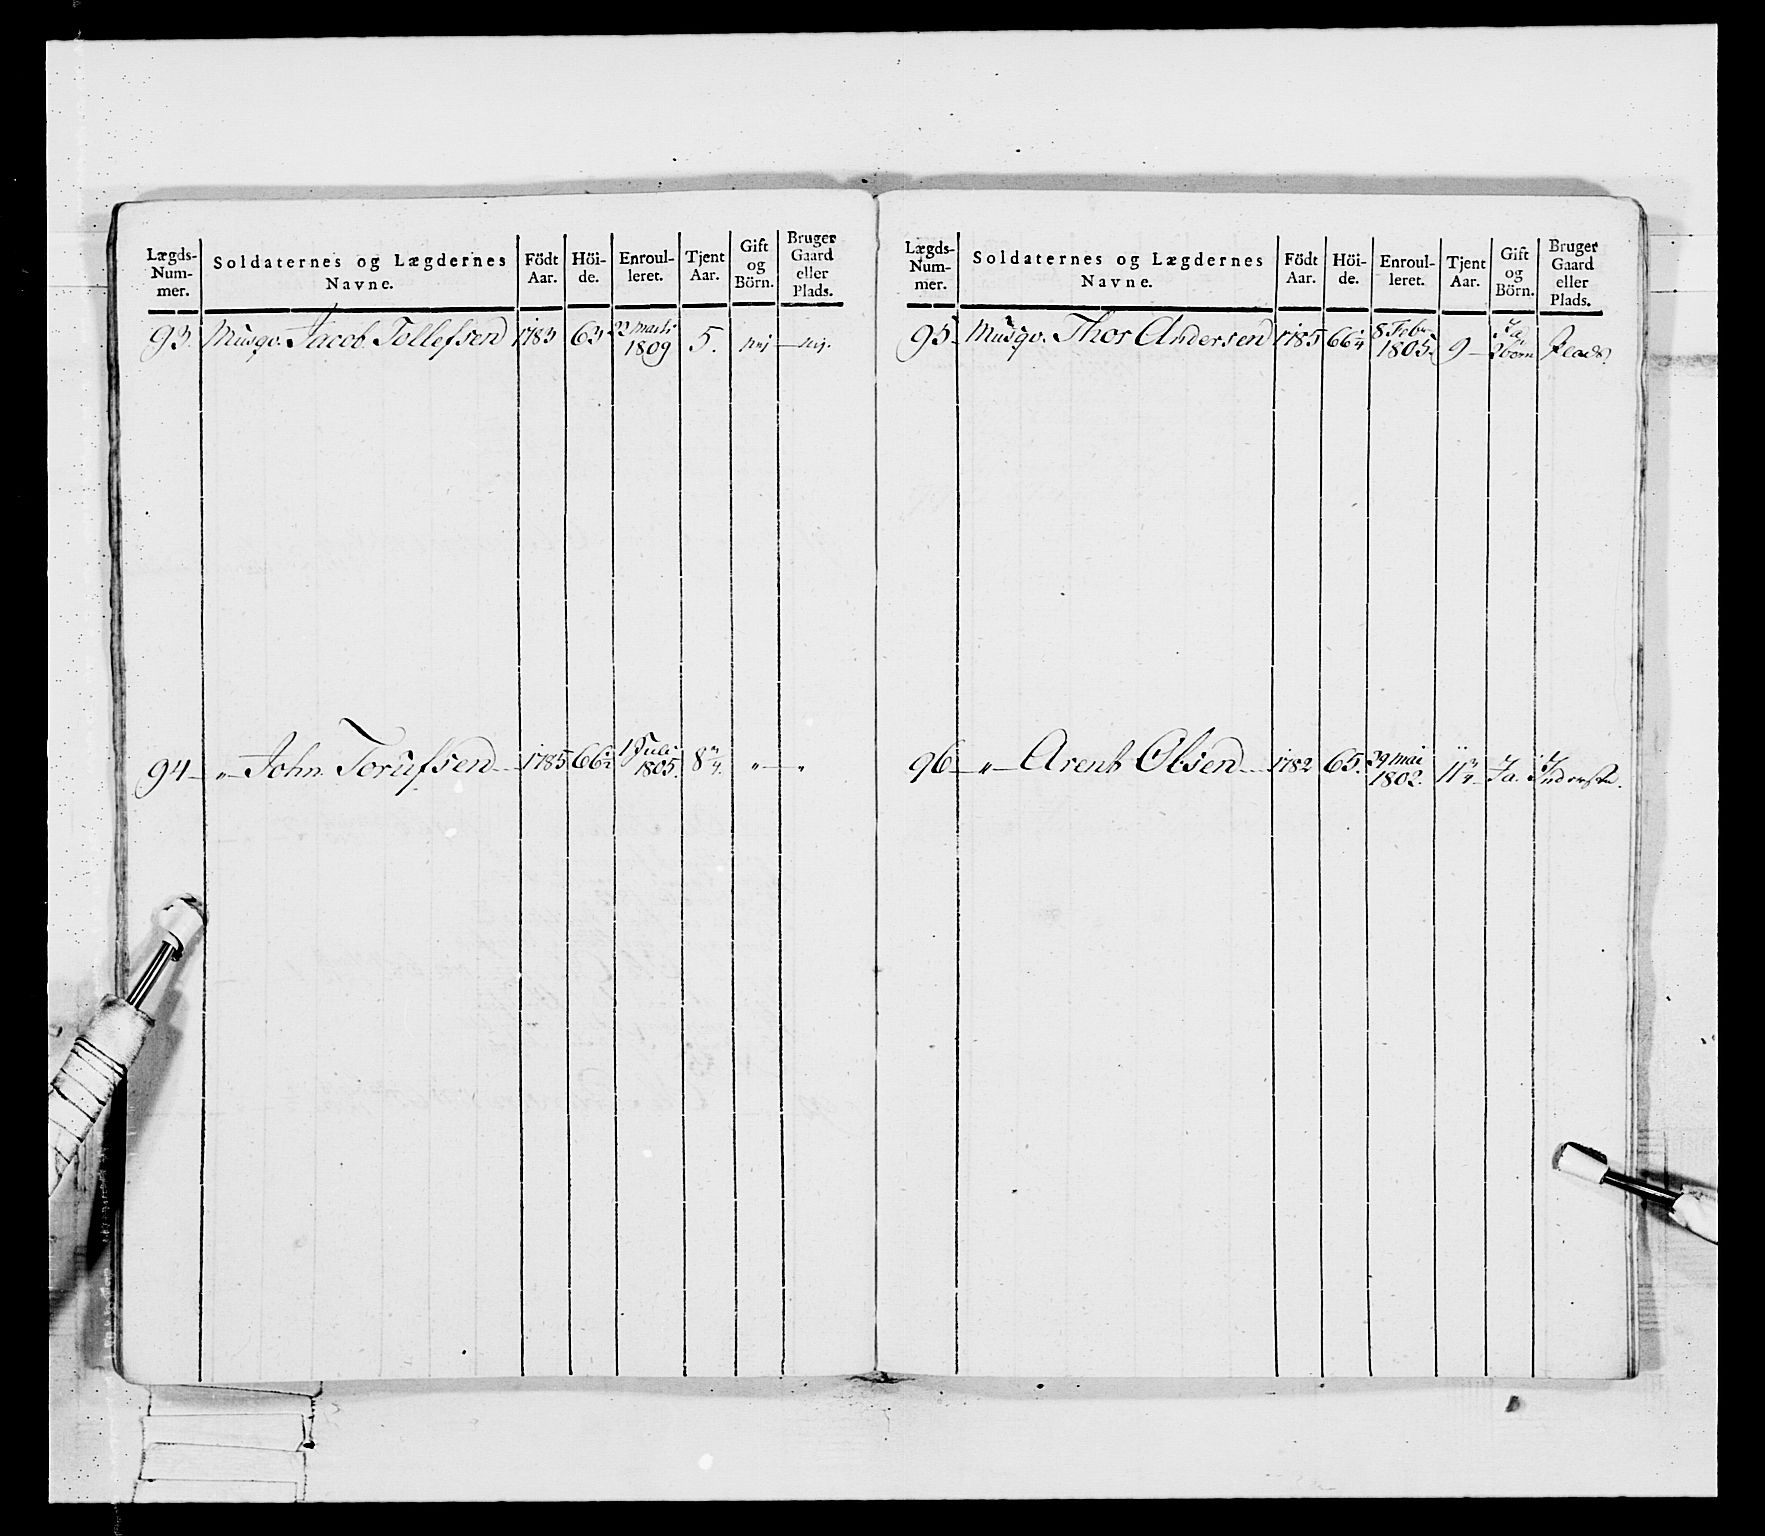 Lægds-Num-mer. | Soldaternes og Lægdernes Navne. | Födt Aar. | Höi-de. | Enroul-leret. | Tjent Aar. | Gift og Börn. | Bruger Gaard eller Plads.
93. Musqv. Jacob Tollefsen 1783 63 22 Marti 1809 5. nej — nej.
94 — „ — John Torufsen 1785 66½ 1 Juli 1805. 8¾. „ — „
Lægds-Num-mer. | Soldaternes og Lægdernes Navne. | Födt Aar. | Höi-de. | Enroul-leret. | Tjent Aar. | Gift og Börn. | Bruger Gaard eller Plads.
95 Musqv. Thor Andersen 1785 66¼ 8 Febr 1805. 9 — Ja 2 börn Plads
96 — „ — Arent Olsen 1782 65. 29 Mai 1802. 11¾ Ja. Inderste.